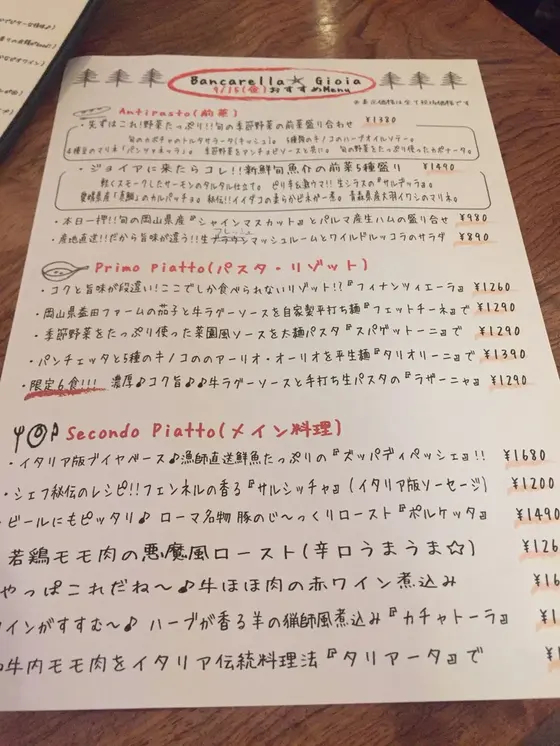 Bancarella ☆ Gioia
9/15(金)おすすめMenu
※表示価格は全て税抜価格です
Antipasto(前菜)
・先ずはこれ!野菜たっぷり!!旬の季節野菜の前菜盛り合わせ ¥1380
旬のカボチャのトルタサラータ(キッシュ)。 5種類のキノコのハーブオイルソテー。
4種豆のマリネ『パンツァネッラ』。 季節野菜をアンチョビソースと共に。 旬の野菜をたっぷり使ったカポナータ。
・ジョイアに来たらコレ!!新鮮旬魚介の前菜5種盛り ¥1490
軽くスモークしたサーモンのタルタル仕立て。 ピリ辛も激ウマ!!生シラスの『サルデッラ』。
愛媛県産『真鯛』のカルパッチョ。 秘伝!!イイダコの柔らかピネガー煮。 青森県産大羽イワシのマリネ。
・本日一押!!旬の岡山県産『シャインマスカット』とパルマ産生ハムの盛り合せ ¥980
・産地直送!!だから旨味が違う!!生フレッシュマッシュルームとワイルドルッコラのサラダ ¥890
Primo Piatto(パスタ・リゾット)
・コクと旨味が段違い!ここでしか食べられないリゾット!?『フィナンツィエーラ』 ¥1260
・岡山県益田ファームの茄子と牛ラグーソースを自家製平打ち麺『フェットチーネ』で ¥1290
・季節野菜をたっぷり使った菜園風ソースを太麺パスタ『スパゲットーニ』で ¥1290
・パンチェッタと5種のキノコののアーリオ・オーリオを平生麺『タリオリーニ』で ¥1390
・限定6食!!! 濃厚♪コク旨♪♪牛ラグーソースと手打ち生パスタの『ラザーニャ』 ¥1290
Secondo Piatto(メイン料理)
・イタリア版ブイヤベース♪漁師直送鮮魚たっぷりの『ズッパディペッシェ』!! ¥1680
・シェフ秘伝のレシピ!!フェンネルの香る『サルシッチャ』(イタリア版ソーセージ) ¥1200
ビールにもピッタリ♪ ローマ名物 豚のじ〜っくりロースト『ポルケッタ』 ¥1490
若鶏モモ肉の悪魔風ロースト(辛口うまうま☆) ¥126
やっぱこれだね〜♪牛ほほ肉の赤ワイン煮込み ¥16
インがすすむ〜♪ ハーブが香る羊の猟師風煮込み『カチャトーラ』 ¥1
牛内モモ肉をイタリア伝統料理法『タリアータ』で ¥